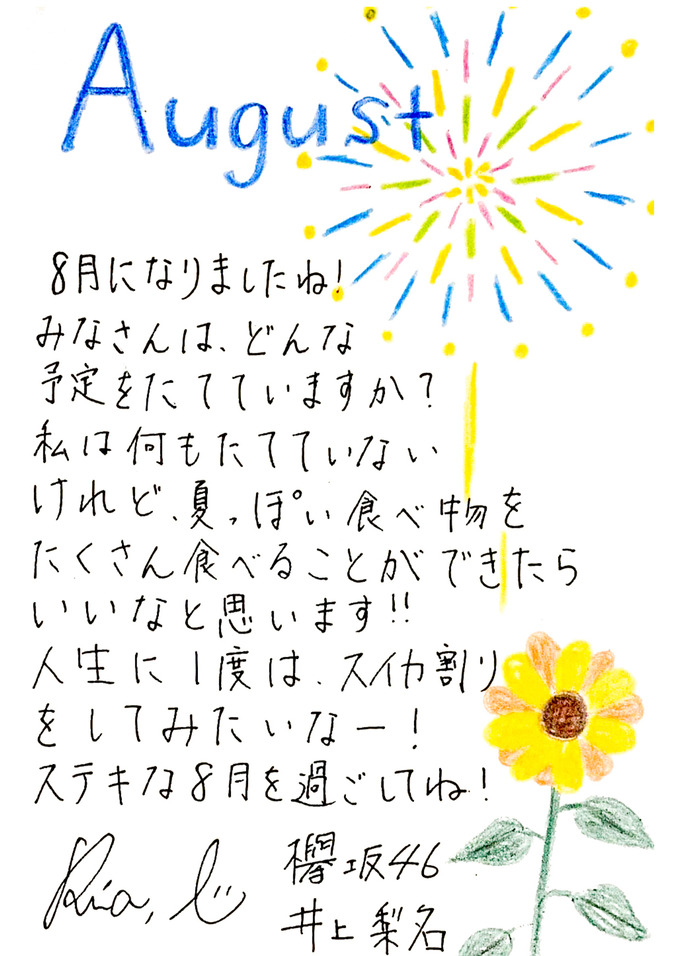 August
8月になりましたね!
みなさんは、どんな
予定をたてていますか?
私は何もたてていない
けれど、夏っぽい食べ物を
たくさん食べることができたら
いいなと思います!!
人生に1度は、スイカ割り
をしてみたいなー!
ステキな8月を過ごしてね!
欅坂46
井上梨名